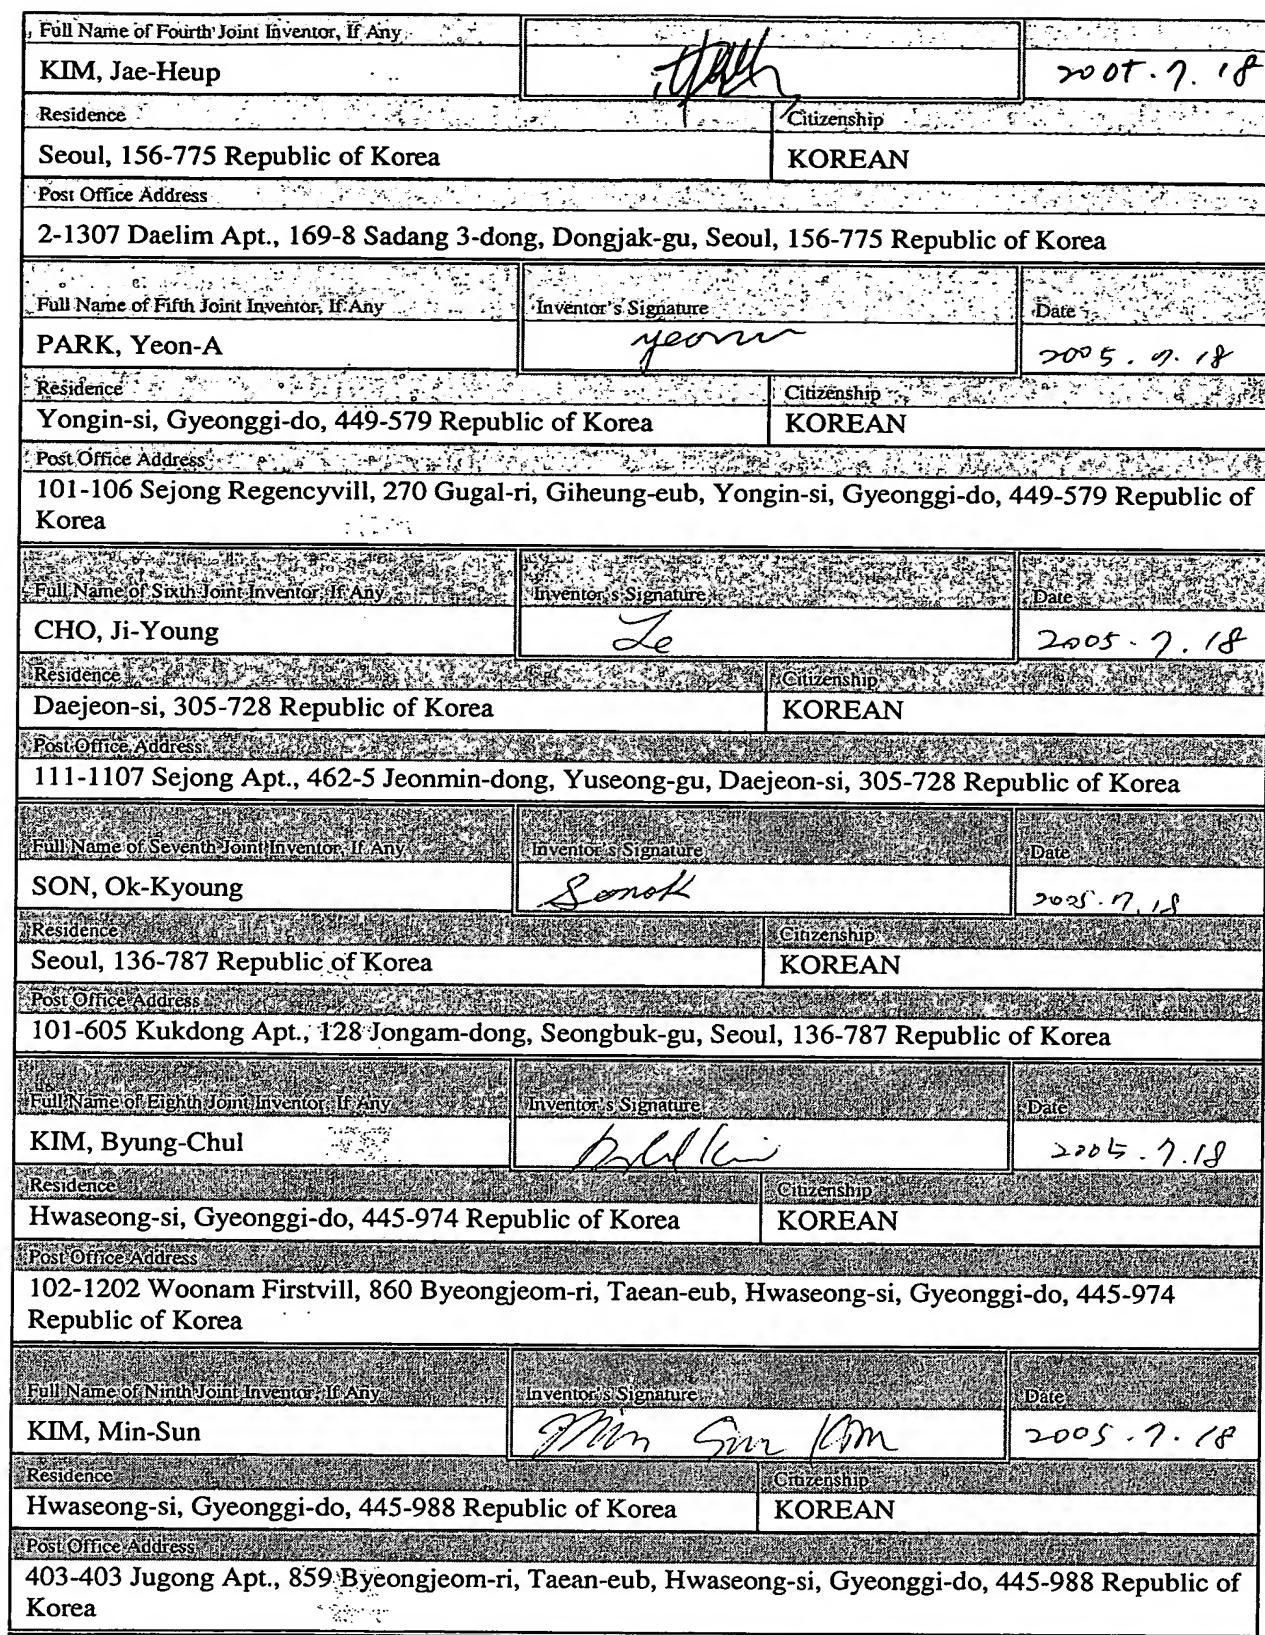 Full Name of Fourth Joint Inventor, If Any
KIM, Jae-Heup
2005.7.18
Residence Citizenship
Seoul, 156-775 Republic of Korea KOREAN
Post Office Address
2-1307 Daelim Apt., 169-8 Sadang 3-dong, Dongjak-gu, Seoul, 156-775 Republic of Korea
Full Name of Fifth Joint Inventor, If Any Inventor's Signature Date
PARK, Yeon-A 2005.7.18
Residence Citizenship
Yongin-si, Gyeonggi-do, 449-579 Republic of Korea KOREAN
Post Office Address
101-106 Sejong Regencyvill, 270 Gugal-ri, Giheung-eub, Yongin-si, Gyeonggi-do, 449-579 Republic of
Korea
Full Name of Sixth Joint Inventor, If Any Inventor's Signature Date
CHO, Ji-Young 2005.7.18
Residence Citizenship
Daejeon-si, 305-728 Republic of Korea KOREAN
Post Office Address
111-1107 Sejong Apt., 462-5 Jeonmin-dong, Yuseong-gu, Daejeon-si, 305-728 Republic of Korea
Full Name of Seventh Joint Inventor, If Any Inventor's Signature Date
SON, Ok-Kyoung Sonok 2005.7.18
Residence Citizenship
Seoul, 136-787 Republic of Korea KOREAN
Post Office Address
101-605 Kukdong Apt., 128 Jongam-dong, Seongbuk-gu, Seoul, 136-787 Republic of Korea
Full Name of Eighth Joint Inventor, If Any Inventor's Signature Date
KIM, Byung-Chul 2005.7.18
Residence Citizenship
Hwaseong-si, Gyeonggi-do, 445-974 Republic of Korea KOREAN
Post Office Address
102-1202 Woonam Firstvill, 860 Byeongjeom-ri, Taean-eub, Hwaseong-si, Gyeonggi-do, 445-974
Republic of Korea
Full Name of Ninth Joint Inventor, If Any Inventor's Signature Date
KIM, Min-Sun Min Sun Kim 2005.7.18
Residence Citizenship
Hwaseong-si, Gyeonggi-do, 445-988 Republic of Korea KOREAN
Post Office Address
403-403 Jugong Apt., 859 Byeongjeom-ri, Taean-eub, Hwaseong-si, Gyeonggi-do, 445-988 Republic of
Korea